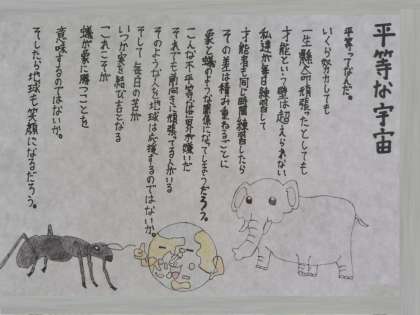 平等な宇宙
平等ってなんだ。
いくら努力しても
一生懸命頑張ったとしても
才能という壁は超えられない
私達が毎日練習して
才能者も同じ時間練習したら
その差は積み重ねるごとに
象と蟻のような関係になってしまうだろう。
こんな不平等な世界が嫌いだ
それでも前向きに頑張ってる人がいる
そのような人を地球は応援するのではないか。
そして毎日の苦が
いつか実を結び吉となる
これこそが
蟻が象に勝つことを
意味するのではないか。
そしたら地球も笑顔になるだろう。